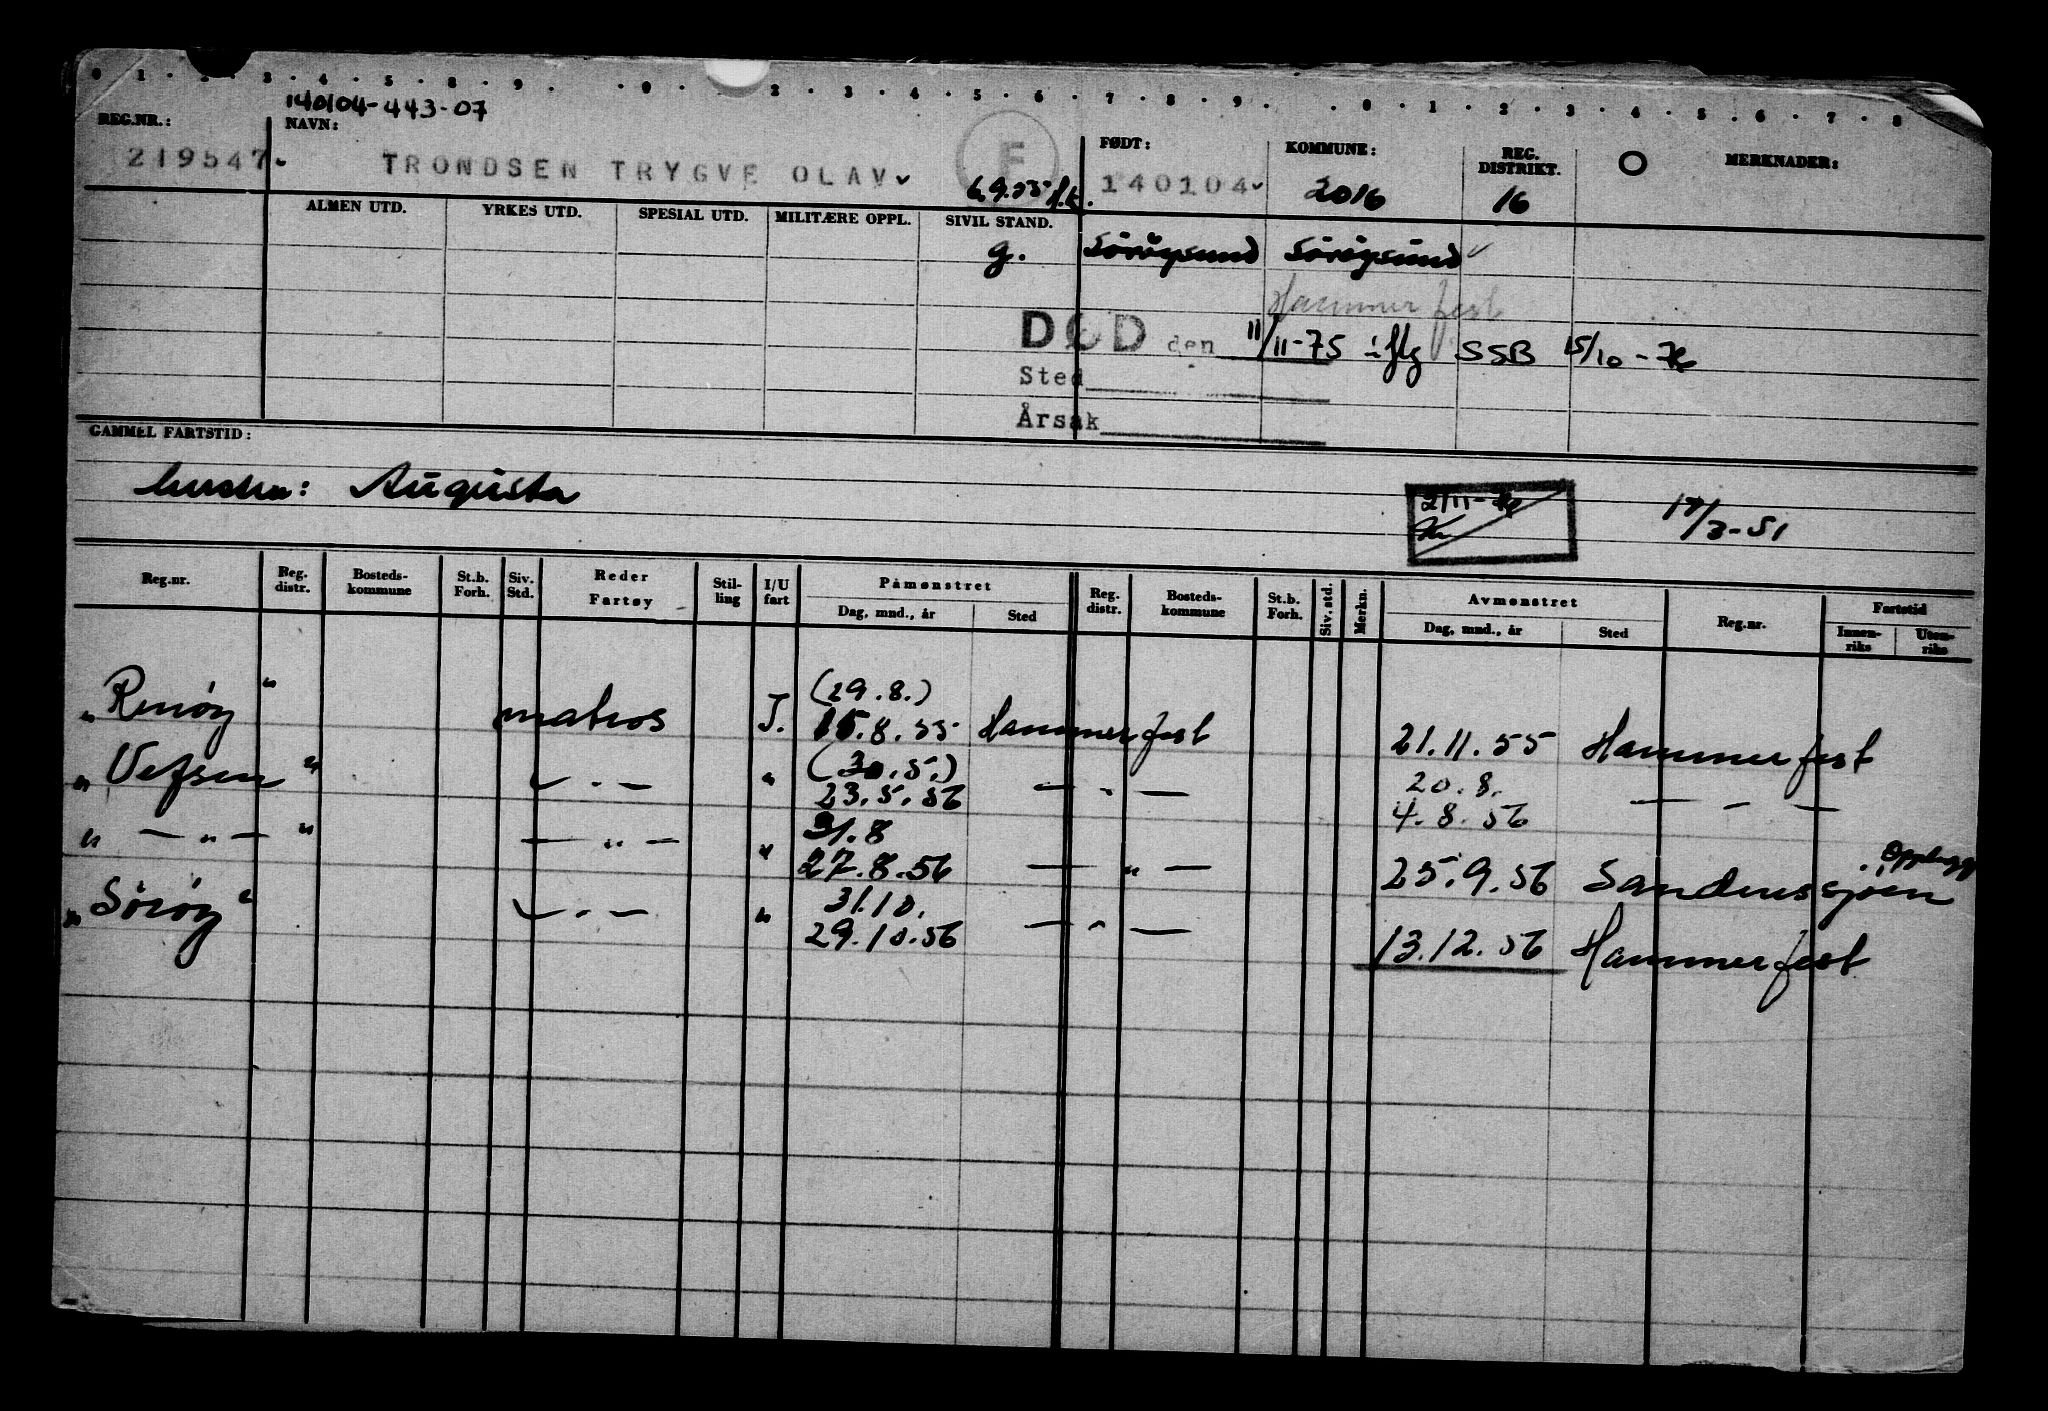 0 1 2 3 4 5 8 9 0 2 3 4 5 6 7 8 9 0 1 2 3 4 5 6 7 8
140104-443-07
REG.NR.: NAVN: FØDT: KOMMUNE: REG. DISTRIKT. O MERKNADER:
219547 TRONDSEN TRYGVE OLAV F 6.9.55 140104 2016 16
ALMEN UTD. YRKES UTD. SPESIAL UTD. MILITÆRE OPPL. SIVIL STAND.
g. Söröysund Söröysund
Hammerfest
DØD den 11/11-75 iflg SSB 15/10-76
Sted
Årsak
GAMMEL FARTSTID:
hustru: Augusta 2/11-76 17/3-51
Reg.nr. Reg. distr. Bosteds-kommune St.b. Forh. Siv. Std. Reder Fartøy Stil-ling I/U fart Påmønstret Dag, mnd., år Sted Reg. distr. Bosteds-kommune St.b. Forh. Siv. std. Merkn. Avmønstret Dag, mnd., år Sted Reg.nr. Fartstid Innen-riks Uten-riks
(29.8.)
" " matros I. 15.8.55 Hammerfest 21.11.55 Hammerfest
(30.5.) 20.8.
"Vefsen" — " — " 23.5.56 — " — 4.8.56 — " —
31.8 Opplagg
" — " — " — " — " 27.8.56 — " — 25.9.56 Sandnessjøen
31.10.
"Söröy" — " — " 29.10.56 — " — 13.12.56 Hammerfest